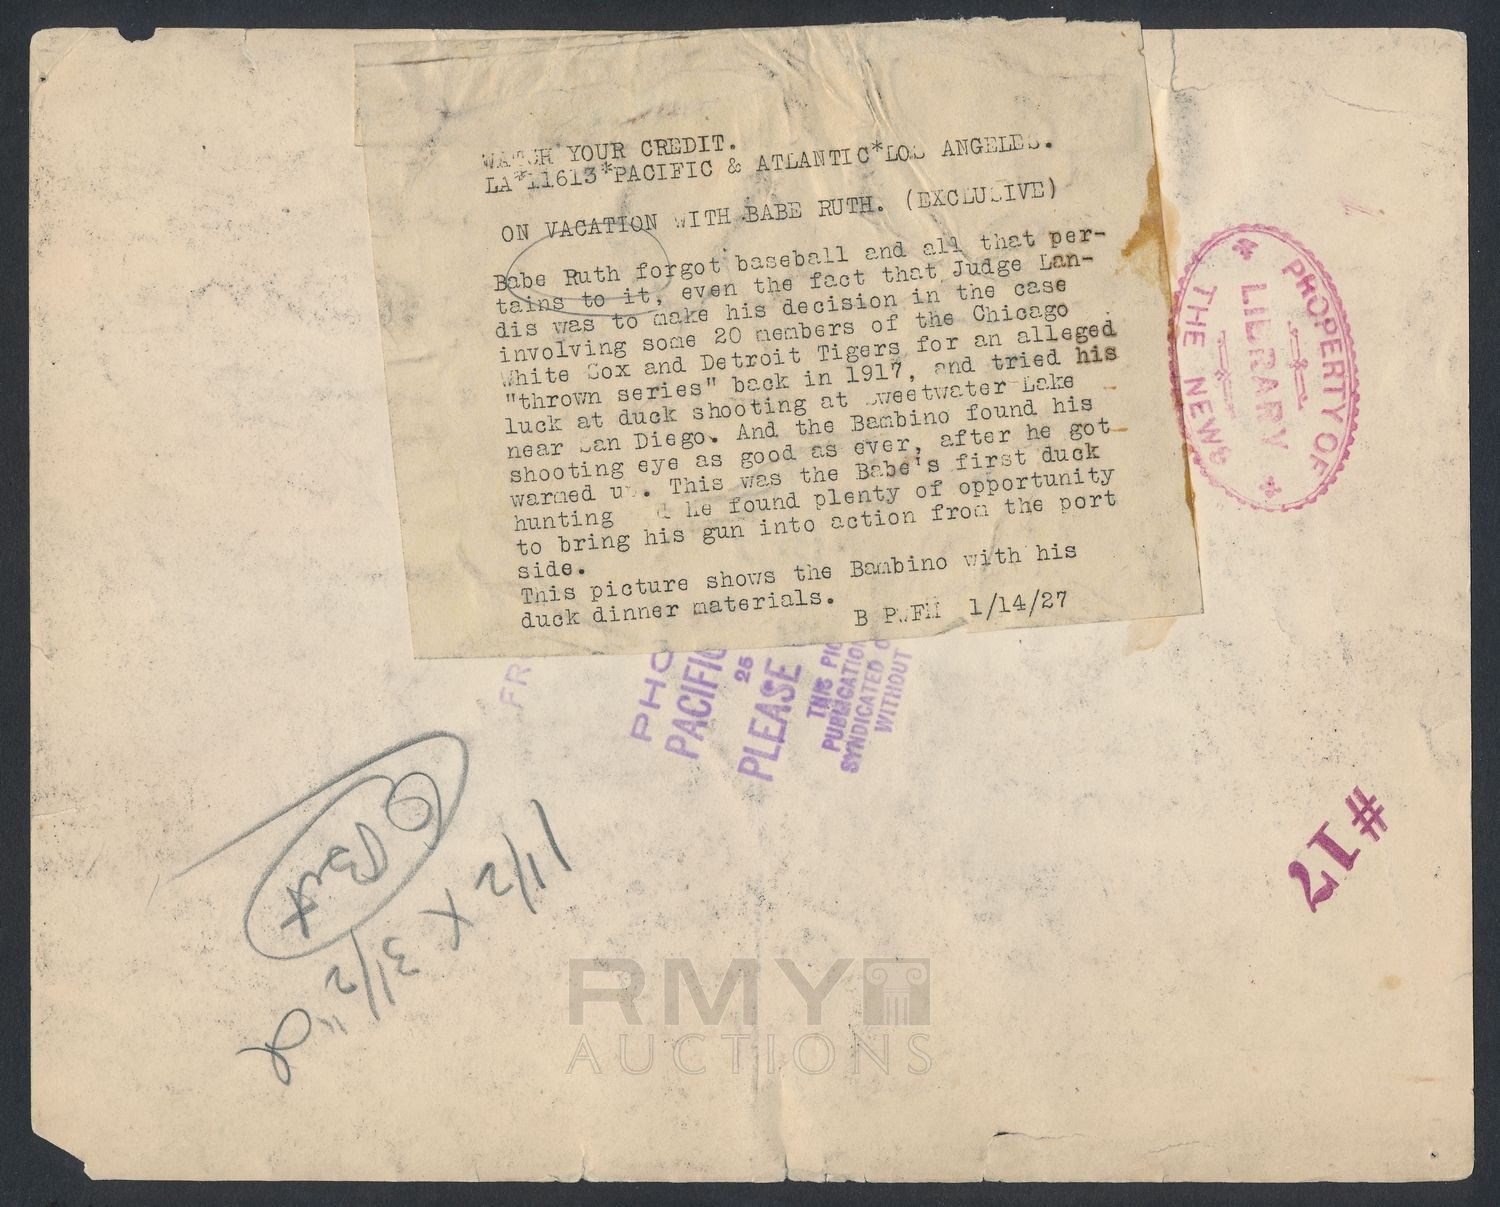 WATCH YOUR CREDIT.
LA*11613*PACIFIC & ATLANTIC*LOS ANGELES.
ON VACATION WITH BABE RUTH. (EXCLUSIVE)
Babe Ruth forgot baseball and all that per-
tains to it, even the fact that Judge Lan-
dis was to make his decision in the case
involving some 20 members of the Chicago
White Sox and Detroit Tigers for an alleged
"thrown series" back in 1917, and tried his
luck at duck shooting at Sweetwater Lake
near San Diego. And the Bambino found his
shooting eye as good as ever, after he got
warmed up. This was the Babe's first duck
hunting he found plenty of opportunity
to bring his gun into action from the port
side.
This picture shows the Bambino with his
duck dinner materials.
B 1/14/27
PROPERTY OF
LIBRARY
THE NEWS
FR
PHO
PACIFIC
25
PLEASE
THIS PIC
PUBLICATION
SYNDICATED O
WITHOUT
#17
1 1/2 X 3 1/2"
RMY
AUCTIONS